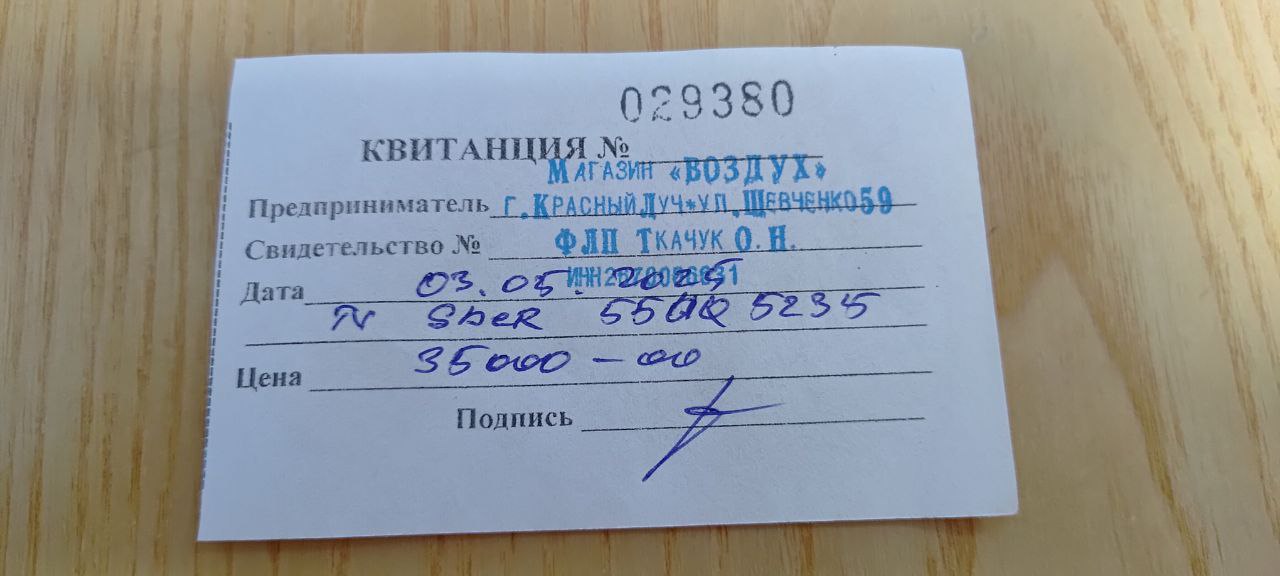 029380
КВИТАНЦИЯ №
МАГАЗИН «ВОЗДУХ»
Предприниматель г.КРАСНЫЙ ЛУЧ*УЛ.ШЕВЧЕНКО59
Свидетельство № ФЛП ТКАЧУК О.Н.
ИНН
Дата 03.05.2025
N SbeR 5235
Цена 35000-00
Подпись